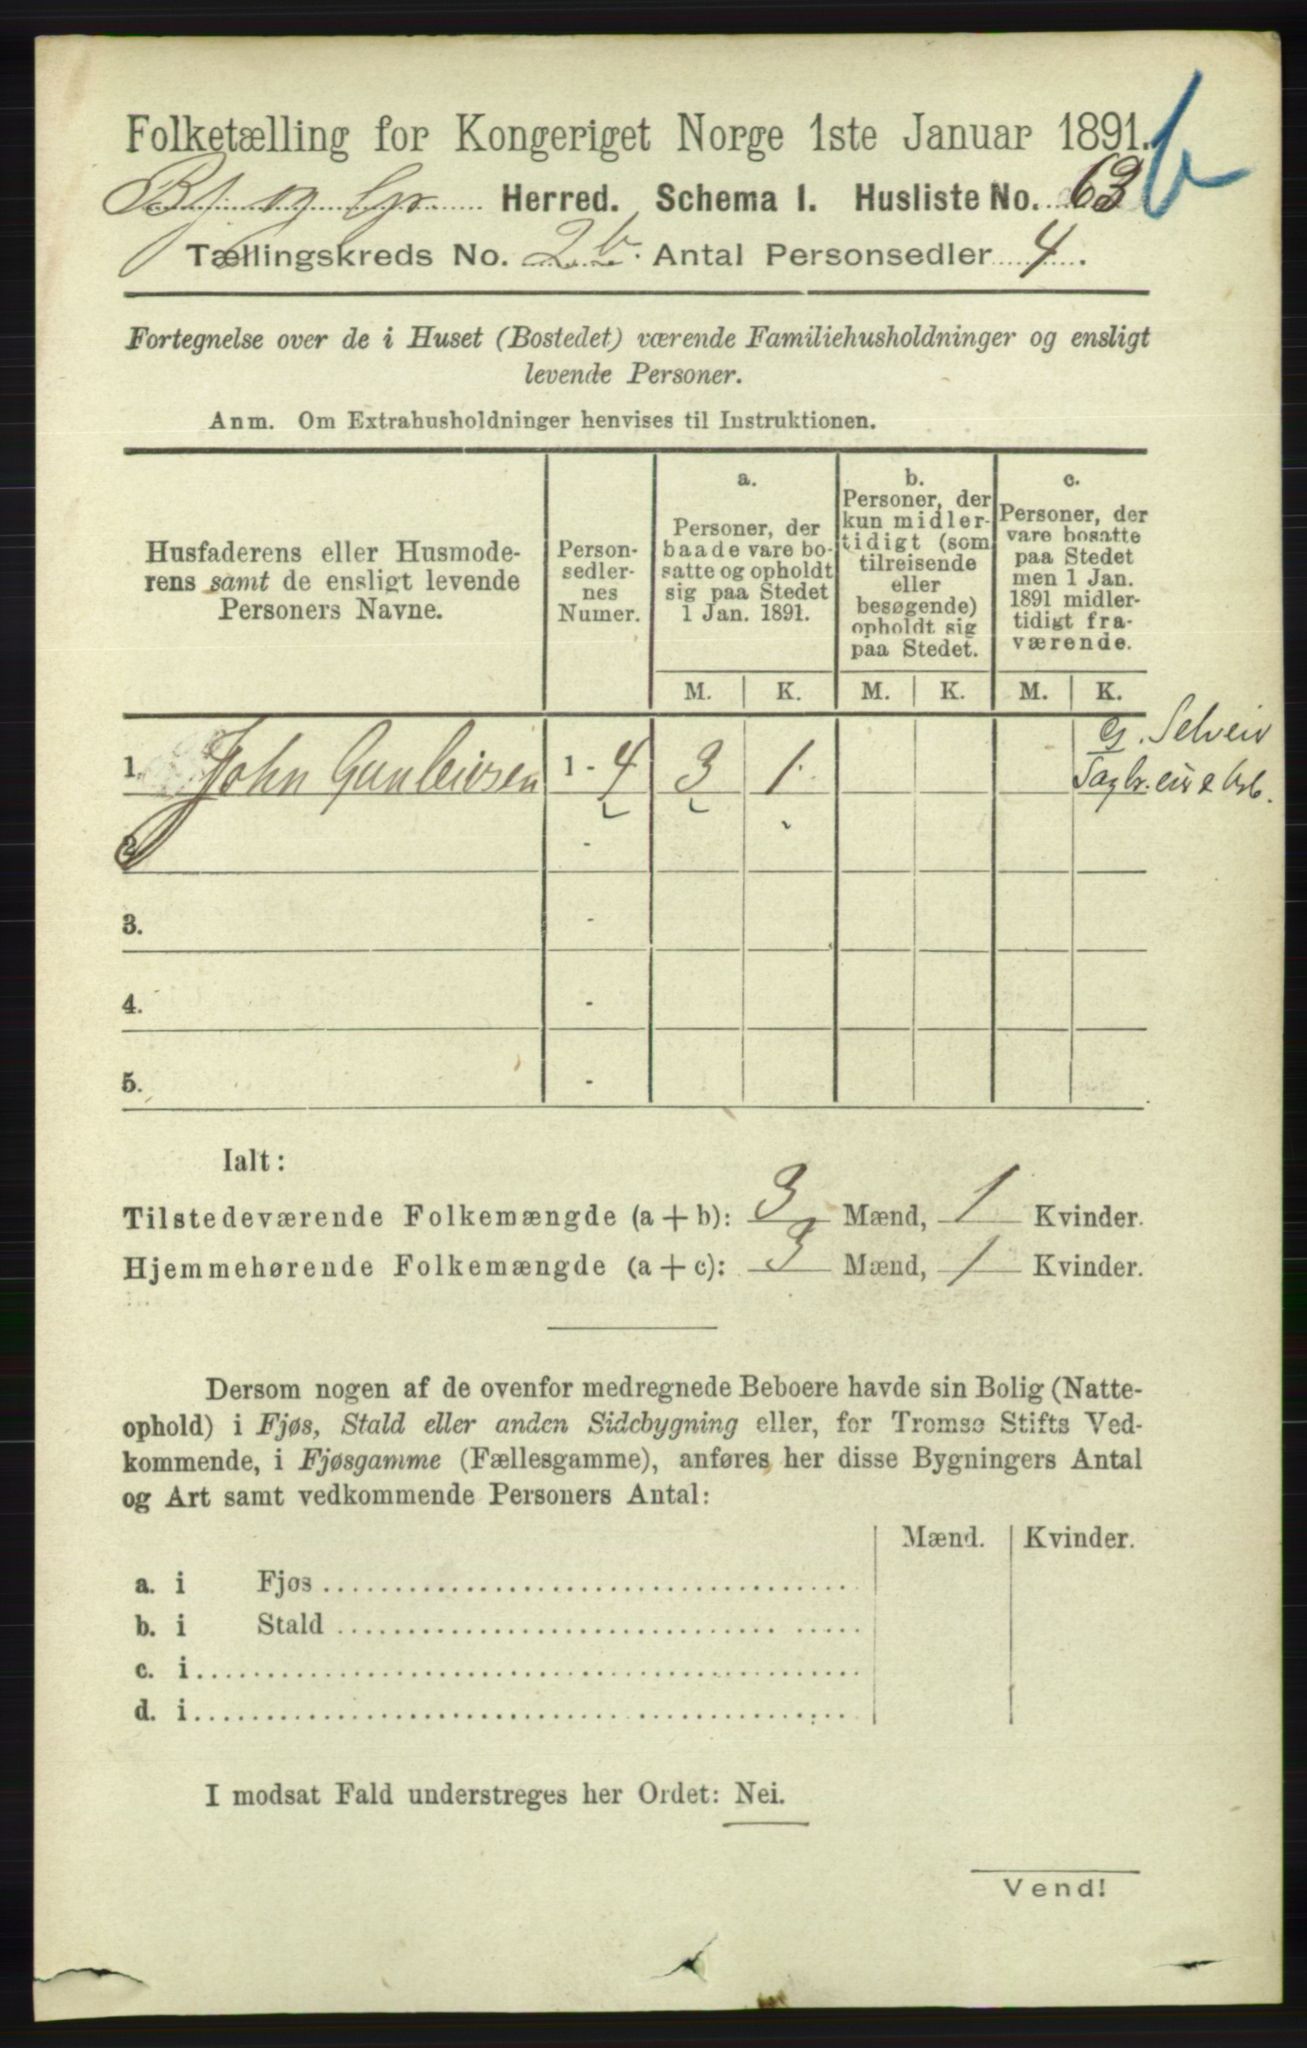 Folketælling for Kongeriget Norge 1ste Januar 1891.
Herred. Schema 1. Husliste No. 63 b
Tællingskreds No. 2b. Antal Personsedler 4.
Fortegnelse over de i Huset (Bostedet) værende Familiehusholdninger og ensligt
levende Personer.
Anm. Om Extrahusholdninger henvises til Instruktionen.
Husfaderens eller Husmode-
rens samt de ensligt levende
Personers Navne.
Person-
sedler-
nes
Numer.
a.
Personer, der
baade vare bo-
satte og opholdt
sig paa Stedet
1 Jan. 1891.
b.
Personer, der
kun midler-
tidigt (som
tilreisende
eller
besøgende)
opholdt sig
paa Stedet.
c.
Personer, der
vare bosatte
paa Stedet
men 1 Jan.
1891 midler-
tidigt fra-
værende.
M. K. M. K. M. K.
G. Selveier
1. John Gunleivsen 1 - 4 3 1
2. -
3. -
4. -
5. -
Ialt:
Tilstedeværende Folkemængde (a + b): 3 Mænd, 1 Kvinder.
Hjemmehørende Folkemængde (a + c): 3 Mænd, 1 Kvinder.
Dersom nogen af de ovenfor medregnede Beboere havde sin Bolig (Natte-
ophold) i Fjøs, Stald eller anden Sidebygning eller, for Tromsø Stifts Ved-
kommende, i Fjøsgamme (Fællesgamme), anføres her disse Bygningers Antal
og Art samt vedkommende Personers Antal:
Mænd. Kvinder.
a. i Fjøs
b. i Stald
c. i
d. i
I modsat Fald understreges her Ordet: Nei.
Vend!